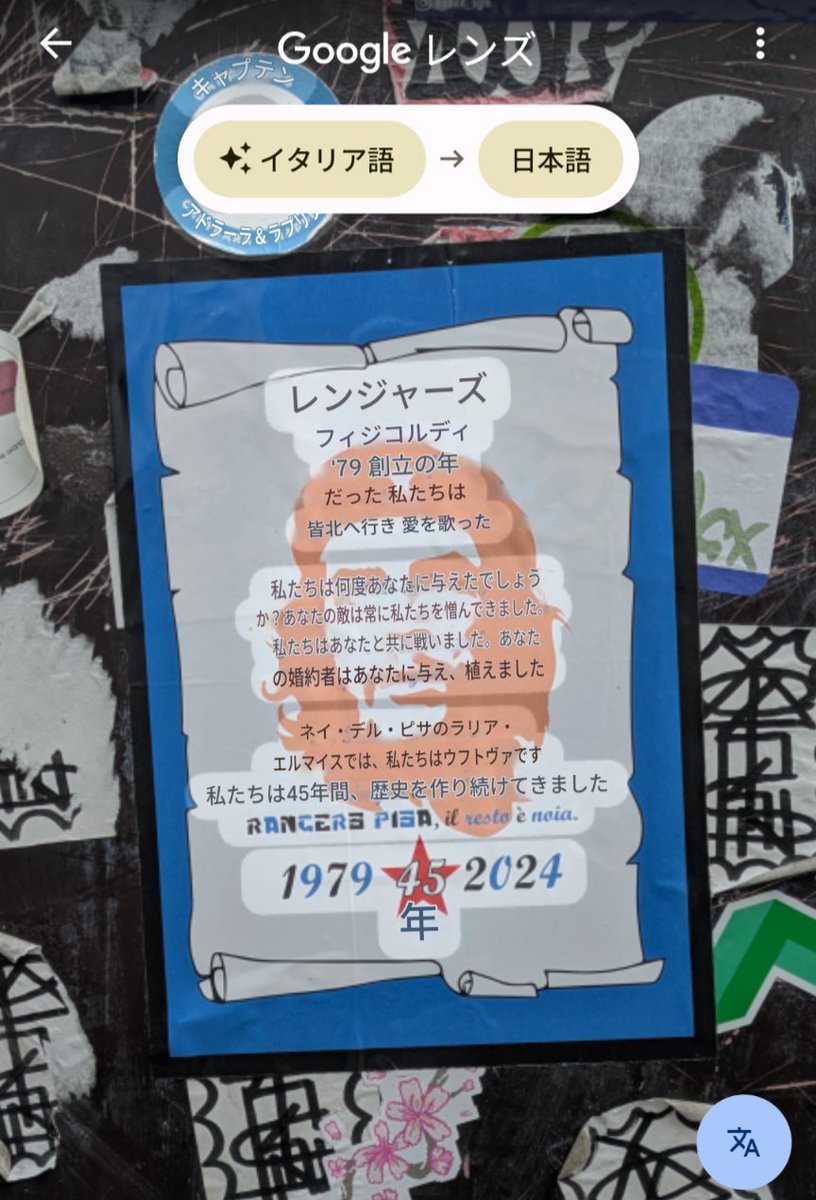 Google レンズ
キャプテン
イタリア語 → 日本語
アドラーラ&ラブリ
レンジャーズ
フィジコルディ
'79 創立の年
だった 私たちは
皆北へ行き 愛を歌った
私たちは何度あなたに与えたでしょう
か?あなたの敵は常に私たちを憎んできました。
私たちはあなたと共に戦いました。あなた
の婚約者はあなたに与え、植えました
ネイ・デル・ピサのラリア・
エルマイスでは、私たちはウフトヴァです
私たちは45年間、歴史を作り続けてきました
RANGERS PISA, il resto è noia.
1979 45 2024
年